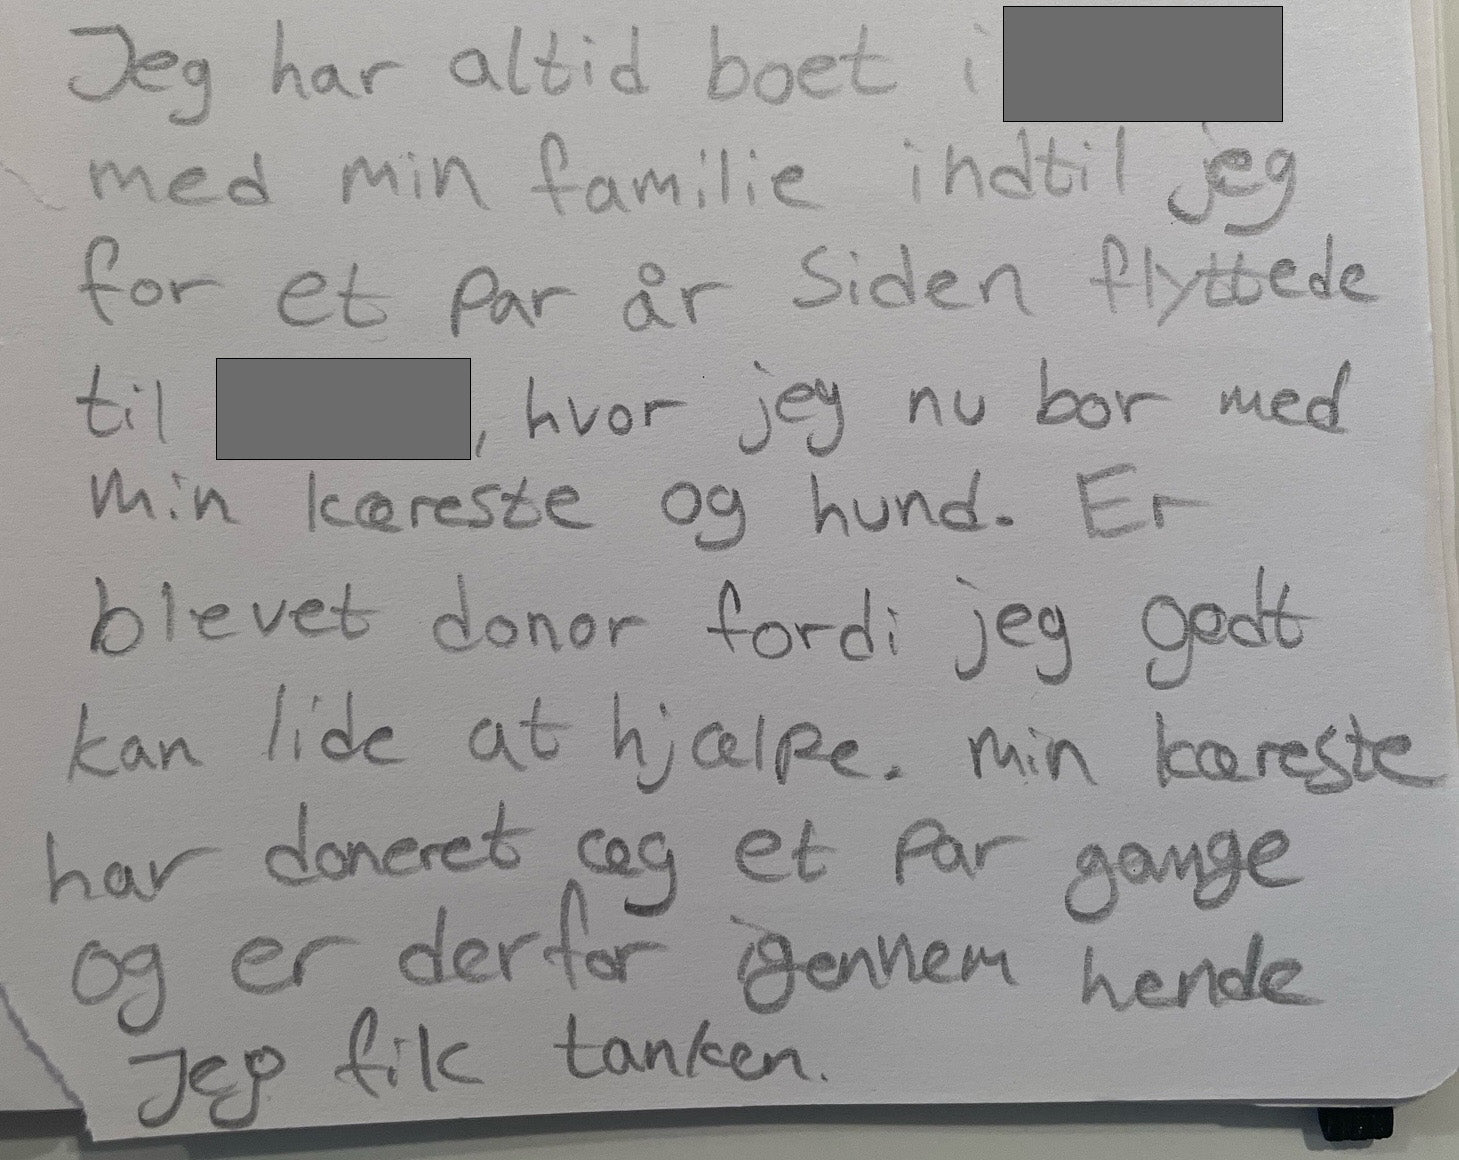 Jeg har altid boet i
med min familie indtil jeg
for et par år siden flyttede
til , hvor jeg nu bor med
min kæreste og hund. Er
blevet donor fordi jeg godt
kan lide at hjælpe. min kæreste
har doneret æg et par gange
og er derfor igennem hende
Jeg fik tanken.